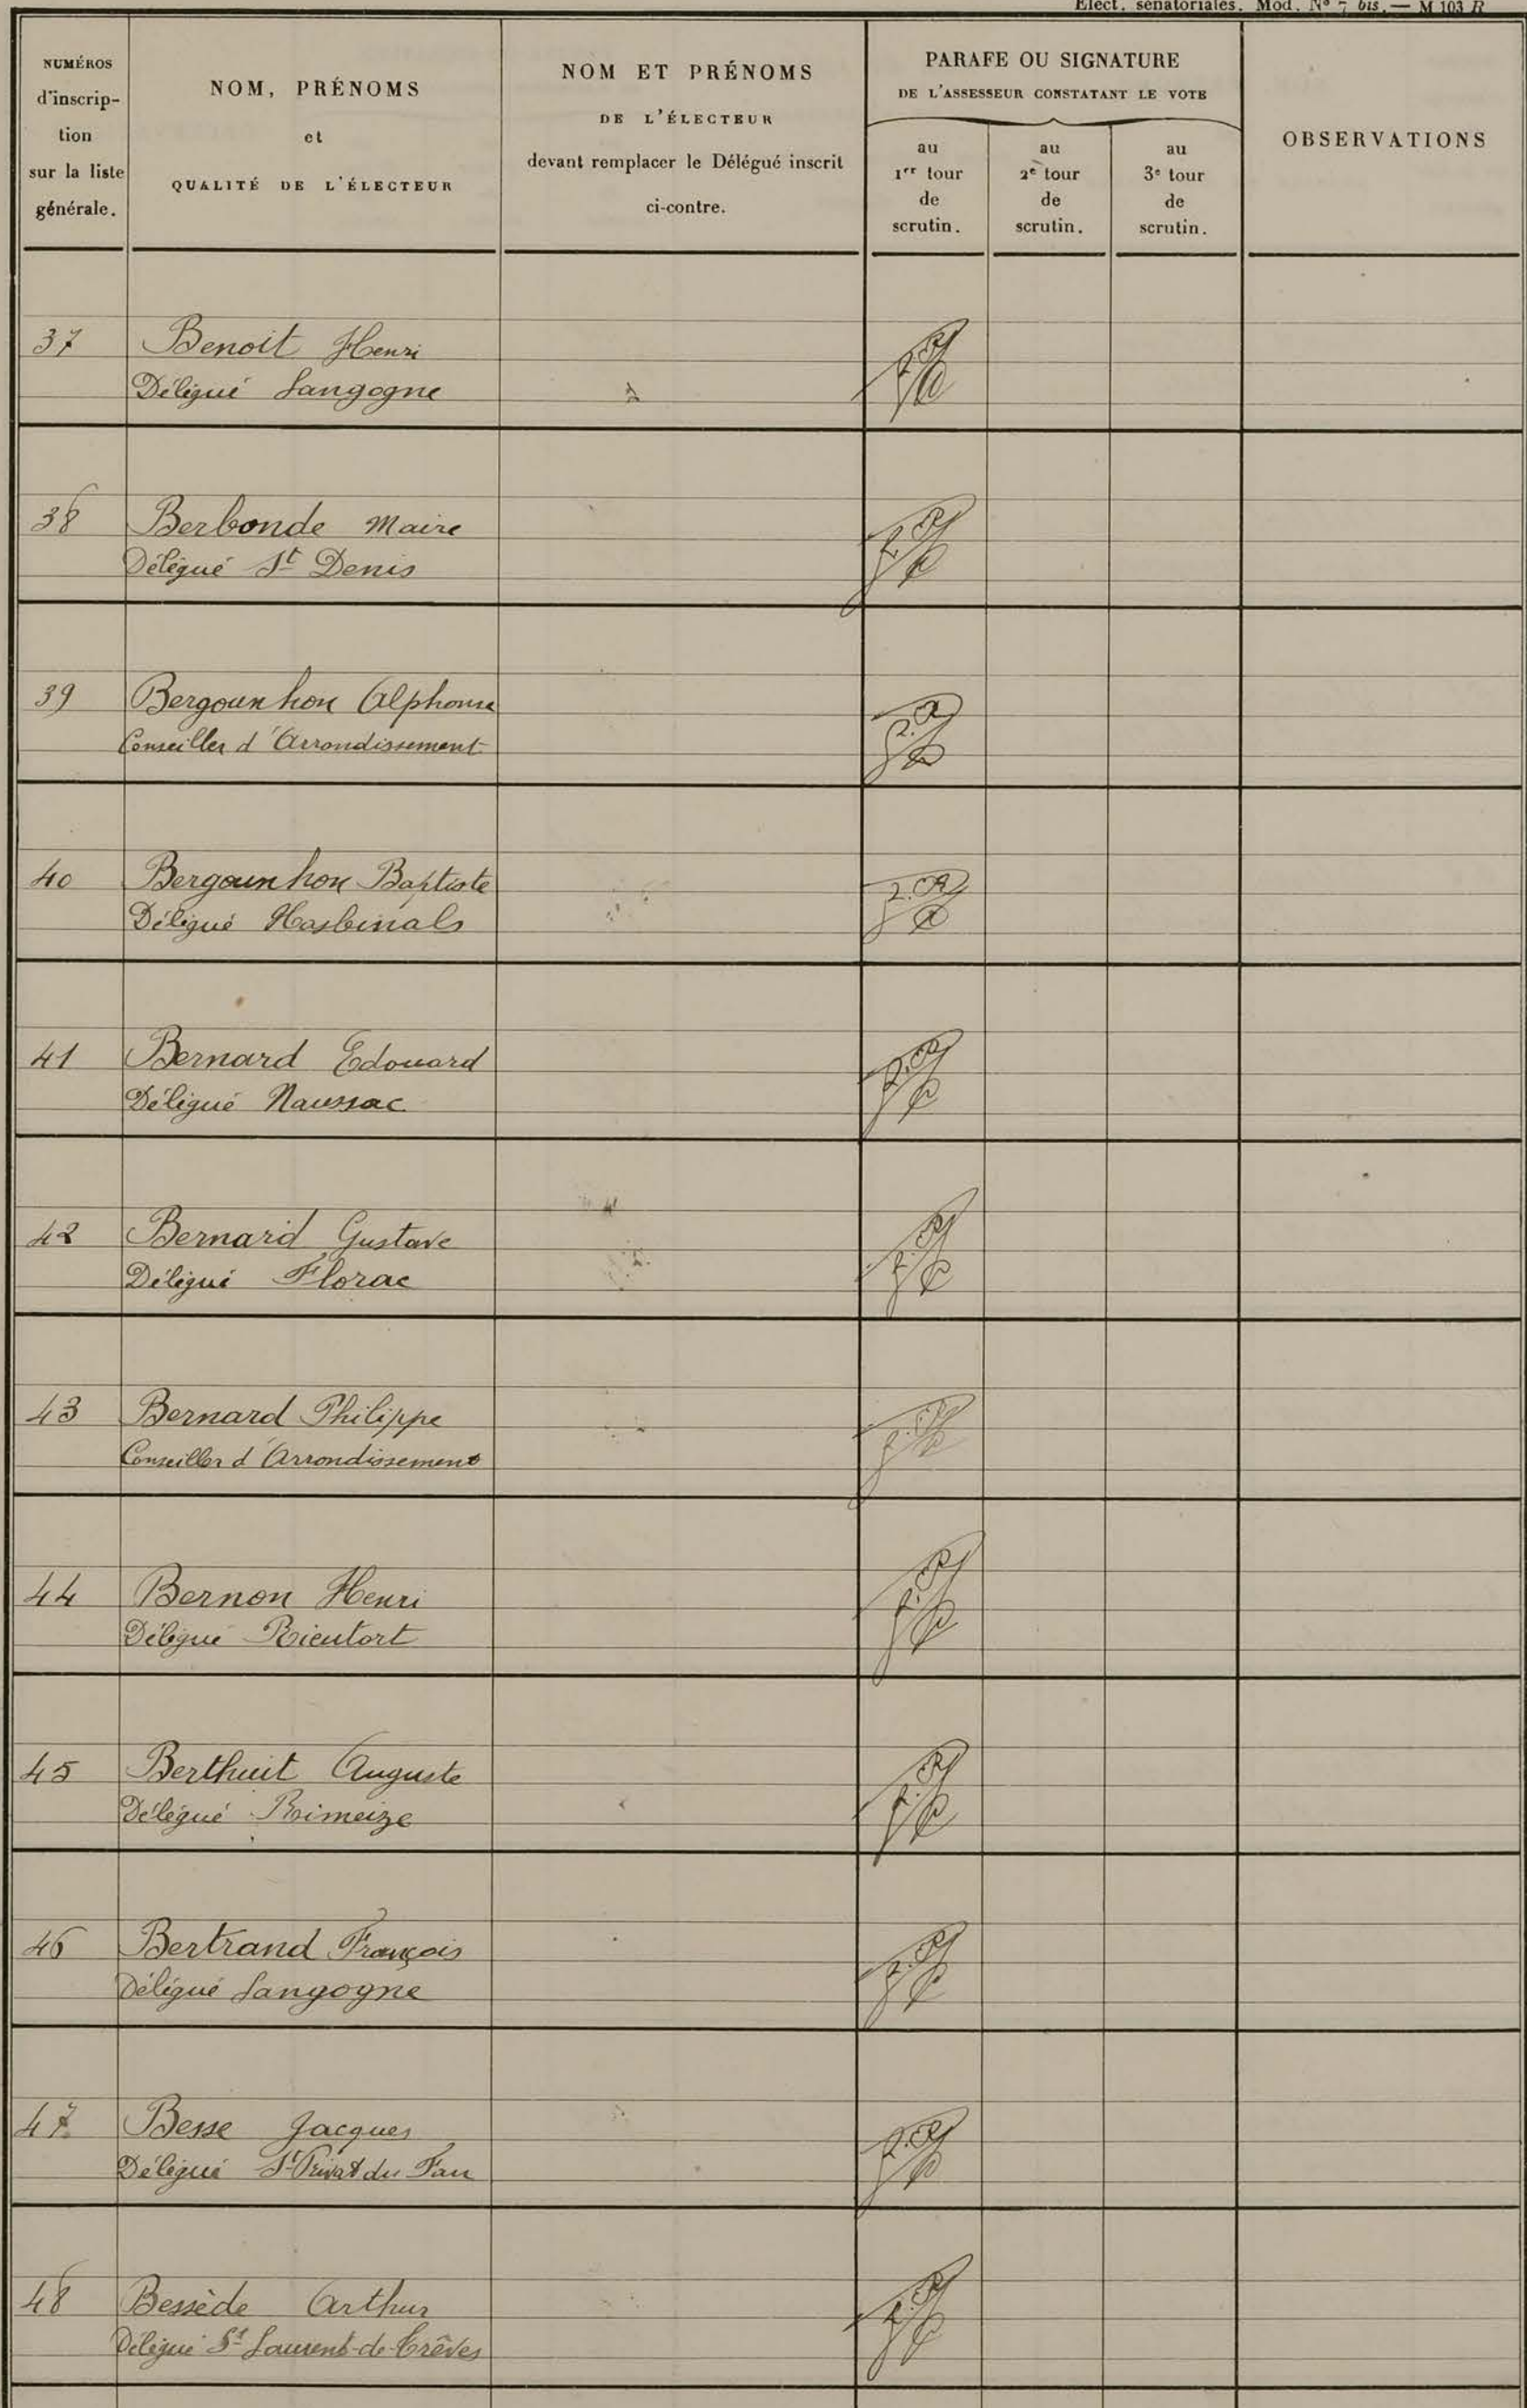 Elect. sénatoriales. Mod. N° 7 bis. — M 103 R
NUMÉROS
d'inscrip-
tion
sur la liste
générale.
NOM, PRÉNOMS
et
QUALITÉ DE L'ÉLECTEUR
NOM ET PRÉNOMS
DE L'ÉLECTEUR
devant remplacer le Délégué inscrit
ci-contre.
PARAFE OU SIGNATURE
DE L'ASSESSEUR CONSTATANT LE VOTE
au
1er tour
de
scrutin.
au
2e tour
de
scrutin.
au
3e tour
de
scrutin.
OBSERVATIONS
37 Benoit Henri
Délégué Langogne
38 Berbonde Maire
Délégué St Denis
39 Bergounhon Alphonse
Conseiller d'Arrondissement
40 Bergounhon Baptiste
Délégué Nasbinals
41 Bernard Edouard
Délégué Naussac
42 Bernard Gustave
Délégué Florac
43 Bernard Philippe
Conseiller d'Arrondissement
44 Bernon Henri
Délégué Rieutort
45 Berthuit Auguste
Délégué Rimeize
46 Bertrand François
Délégué Langogne
47 Besse Jacques
Délégué St Privat du Fau
48 Bessède Arthur
Délégué St Laurent-de-Trêves